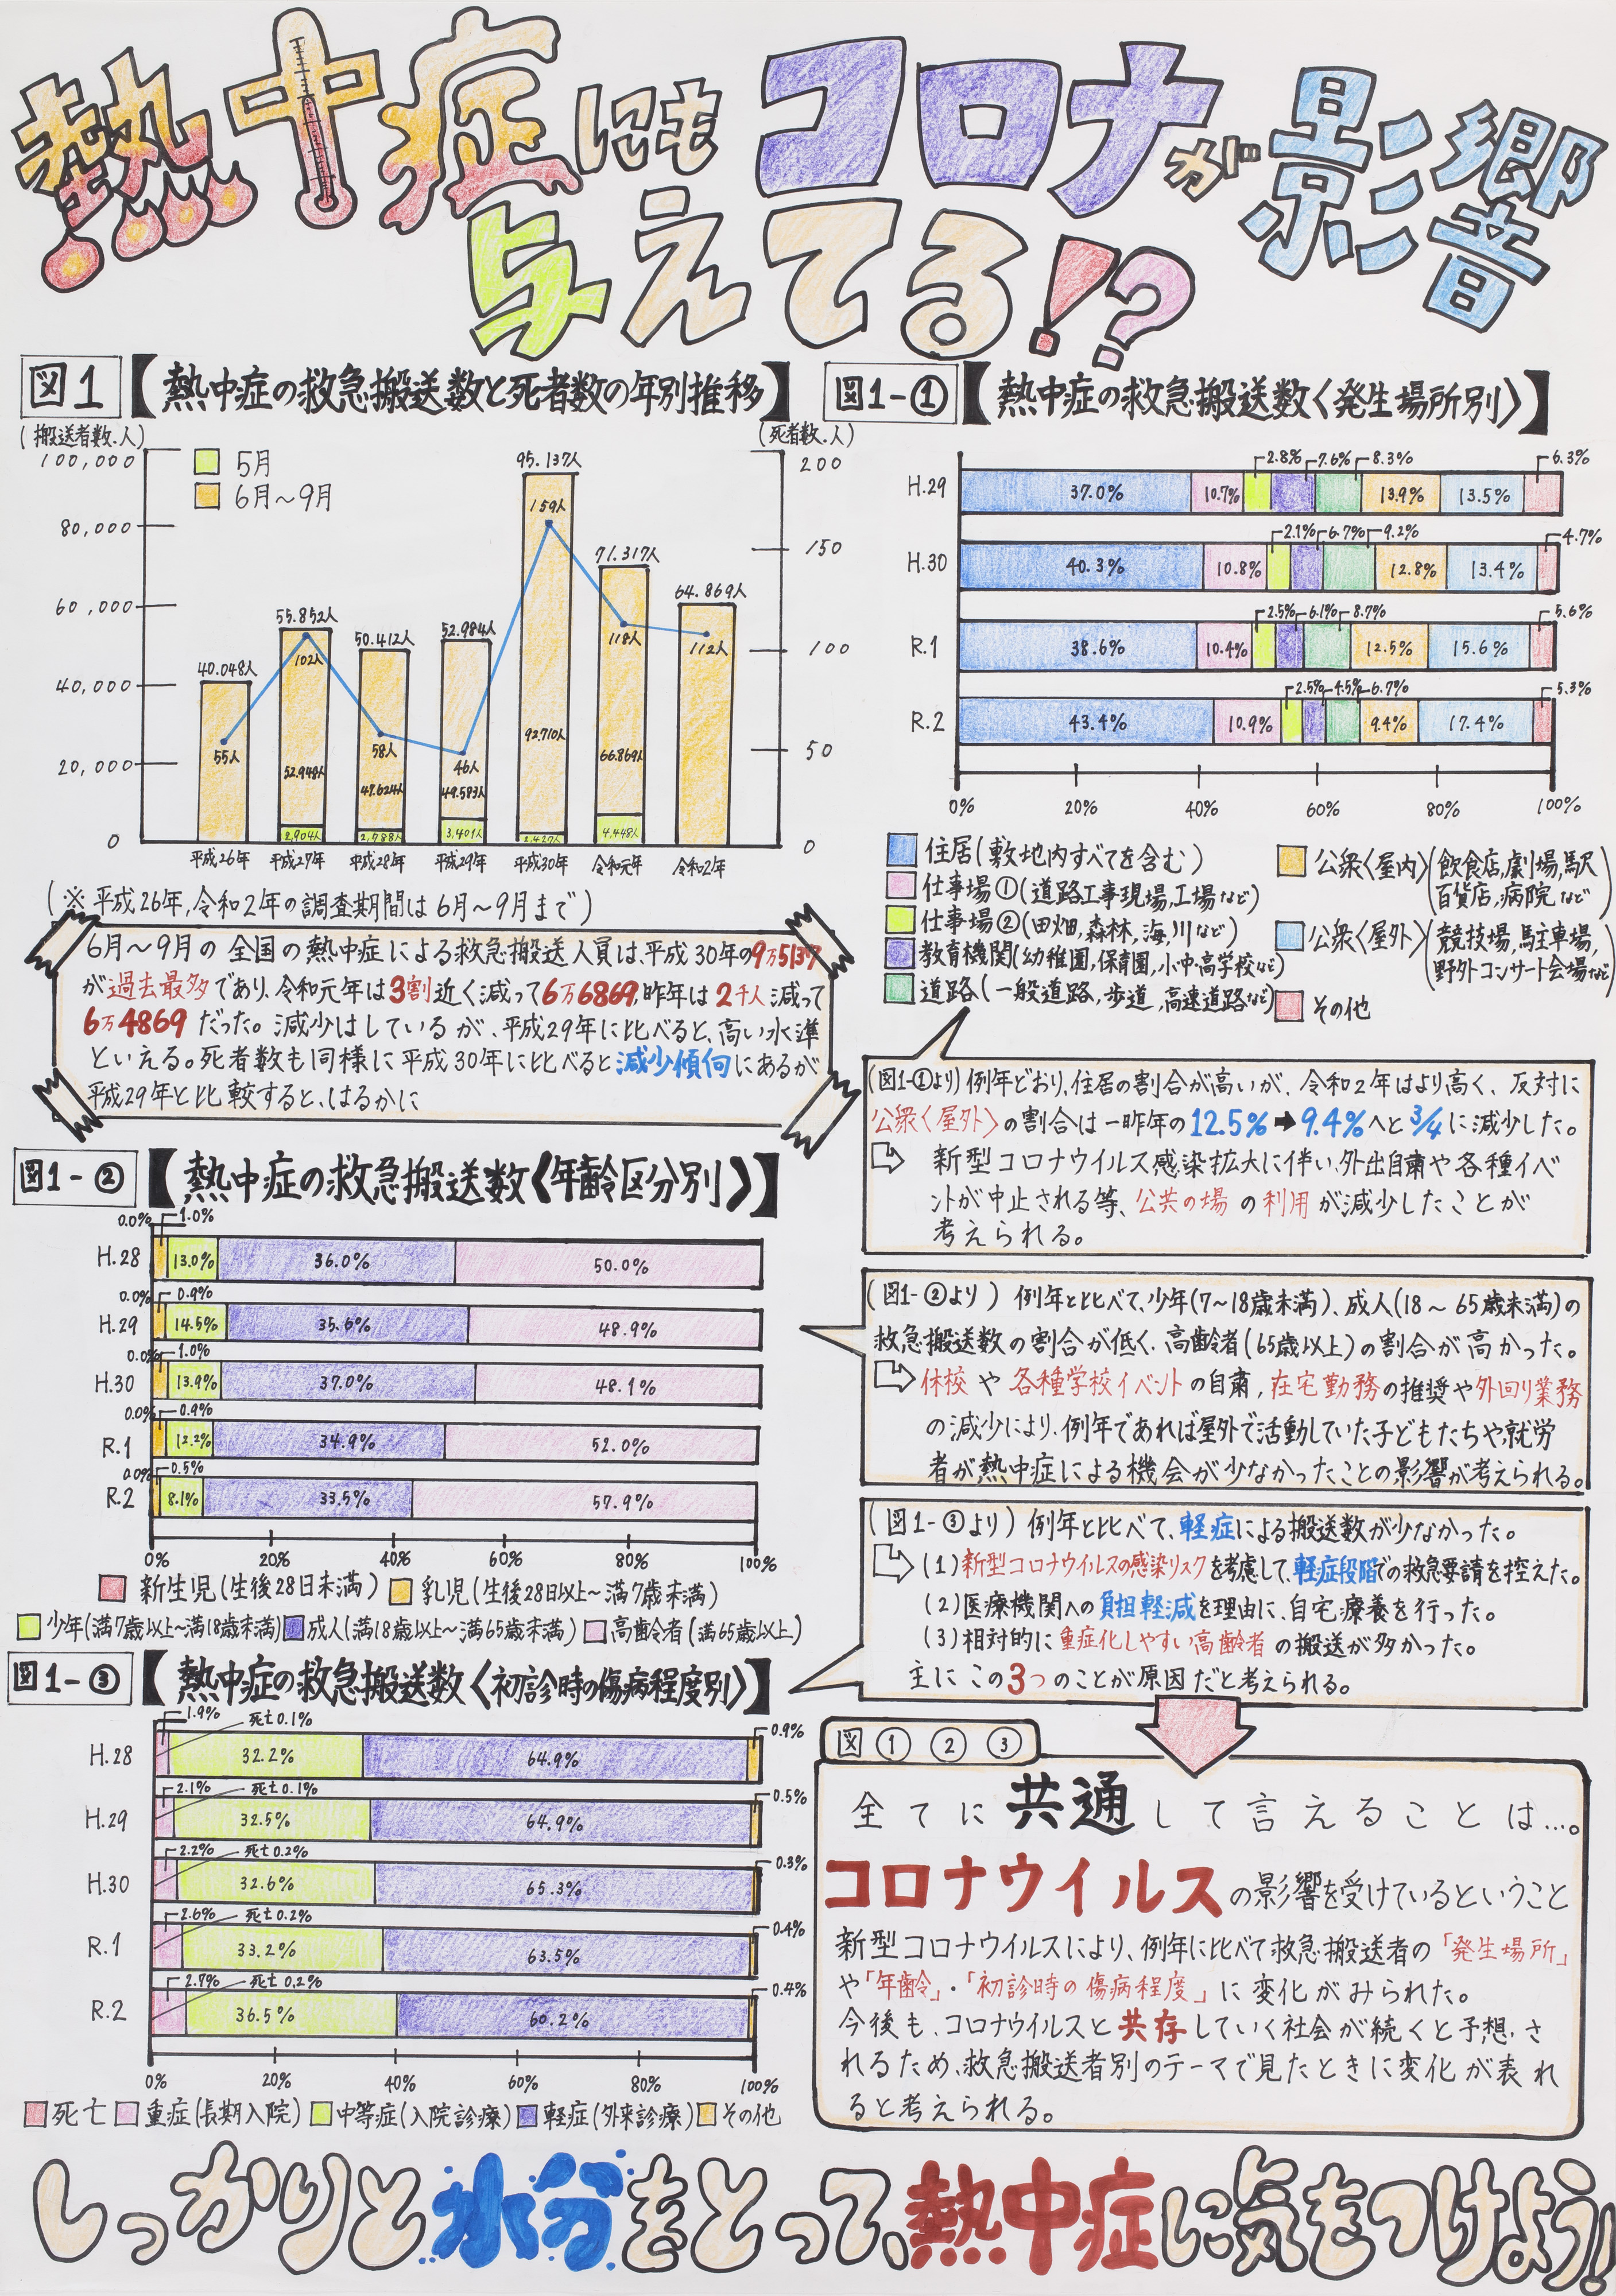 熱中症にもコロナが影響
与えてる!?
図1【熱中症の救急搬送数と死者数の年別推移】
(搬送者数.人)
(死者数.人)
100,000
80,000
60,000
40,000
20,000
0
200
150
100
50
0
5月
6月～9月
40.048人
55.852人
50.412人
52.984人
95.137人
71.317人
64.869人
55人
102人
58人
46人
159人
118人
112人
52.948人
47.624人
49.583人
92.710人
66.869人
2,904人
2,788人
3,401人
2,427人
4,448人
平成26年 平成27年 平成28年 平成29年 平成30年 令和元年 令和2年
(※平成26年,令和2年の調査期間は6月～9月まで)
6月～9月の全国の熱中症による救急搬送人員は、平成30年の9万5137
が過去最多であり、令和元年は3割近く減って6万6869,昨年は2千人減って
6万4869だった。減少はしているが、平成29年に比べると、高い水準
といえる。死者数も同様に平成30年に比べると減少傾向にあるが
平成29年と比較すると、はるかに
図1-①【熱中症の救急搬送数〈発生場所別〉】
2.8% 7.6% 8.3% 6.3%
H.29 37.0% 10.7% 13.9% 13.5%
2.1% 6.7% 9.2% 4.7%
H.30 40.3% 10.8% 12.8% 13.4%
2.5% 6.1% 8.7% 5.6%
R.1 38.6% 10.4% 12.5% 15.6%
2.5% 4.5% 6.7% 5.3%
R.2 43.4% 10.9% 9.4% 17.4%
0% 20% 40% 60% 80% 100%
住居(敷地内すべてを含む)
仕事場①(道路工事現場,工場など)
仕事場②(田畑,森林,海,川など)
教育機関(幼稚園,保育園,小中高学校など)
道路(一般道路,歩道,高速道路など)
公衆〈屋内〉(飲食店,劇場,駅
百貨店,病院など)
公衆〈屋外〉(競技場,駐車場,
野外コンサート会場など)
その他
(図1-①より)例年どおり,住居の割合が高いが、令和2年はより高く、反対に
公衆〈屋外〉の割合は一昨年の12.5%➡9.4%へと3/4に減少した。
⇨ 新型コロナウイルス感染拡大に伴い,外出自粛や各種イベ
ントが中止される等、公共の場の利用が減少したことが
考えられる。
図1-②【熱中症の救急搬送数《年齢区分別》】
0.0% 1.0%
H.28 13.0% 36.0% 50.0%
0.0% 0.9%
H.29 14.5% 35.6% 48.9%
0.0% 1.0%
H.30 13.9% 37.0% 48.1%
0.0% 0.9%
R.1 12.2% 34.9% 52.0%
0.0% 0.5%
R.2 8.1% 33.5% 57.9%
0% 20% 40% 60% 80% 100%
新生児(生後28日未満) 乳児(生後28日以上～満7歳未満)
少年(満7歳以上～満18歳未満) 成人(満18歳以上～満65歳未満) 高齢者(満65歳以上)
(図1-②より) 例年と比べて、少年(7～18歳未満)、成人(18～65歳未満)の
救急搬送数の割合が低く、高齢者(65歳以上)の割合が高かった。
⇨休校や各種学校イベントの自粛,在宅勤務の推奨や外回り業務
の減少により、例年であれば屋外で活動していた子どもたちや就労
者が熱中症による機会が少なかったことの影響が考えられる。
(図1-③より)例年と比べて、軽症による搬送数が少なかった。
⇨(1)新型コロナウイルスの感染リスクを考慮して、軽症段階での救急要請を控えた。
(2)医療機関への負担軽減を理由に、自宅療養を行った。
(3)相対的に重症化しやすい高齢者の搬送が多かった。
主にこの3つのことが原因だと考えられる。
図1-③【熱中症の救急搬送数〈初診時の傷病程度別〉】
1.9% 死亡0.1% 0.9%
H.28 32.2% 64.9%
2.1% 死亡0.1% 0.5%
H.29 32.5% 64.9%
2.2% 死亡0.2% 0.3%
H.30 32.6% 65.3%
2.6% 死亡0.2% 0.4%
R.1 33.2% 63.5%
2.7% 死亡0.2% 0.4%
R.2 36.5% 60.2%
0% 20% 40% 60% 80% 100%
死亡 重症(長期入院) 中等症(入院診療) 軽症(外来診療) その他
図 ① ② ③
全てに共通して言えることは…。
コロナウイルスの影響を受けているということ
新型コロナウイルスにより、例年に比べて救急搬送者の「発生場所」
や「年齢」・「初診時の傷病程度」に変化がみられた。
今後も、コロナウイルスと共存していく社会が続くと予想.さ
れるため、救急搬送者別のテーマで見たときに変化が表れ
ると考えられる。
しっかりと水分をとって、熱中症に気をつけよう!